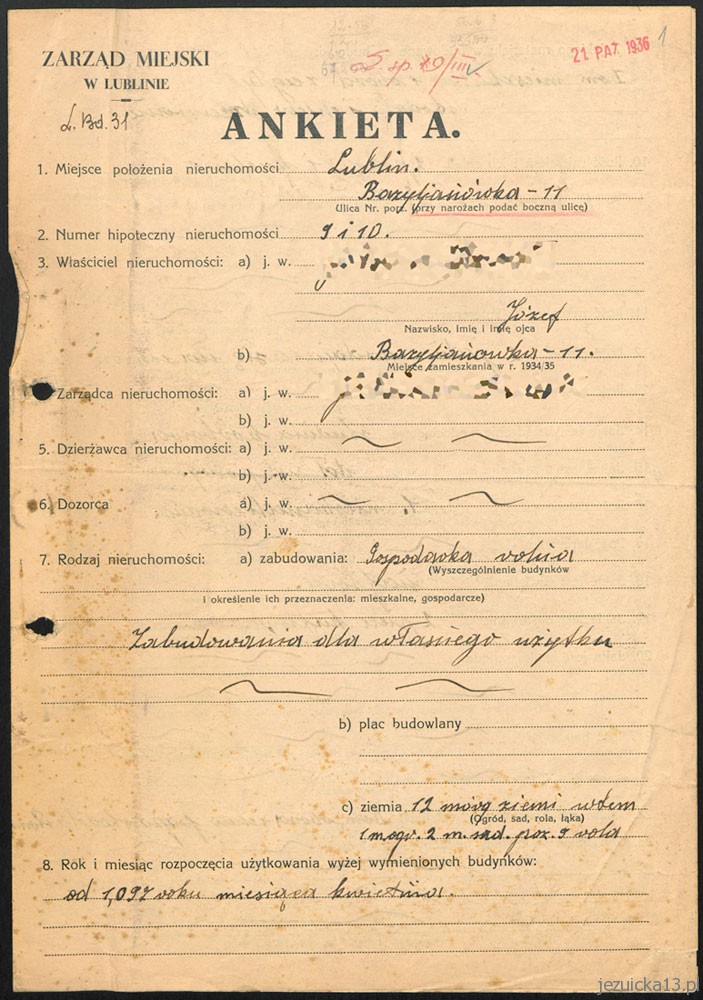 ZARZĄD MIEJSKI
W LUBLINIE
21 PAŹ. 1936
1
L. Bd. 31
ANKIETA.
1. Miejsce położenia nieruchomości Lublin.
Bazylianówka - 11
Ulica Nr. porz. (przy narożach podać boczną ulicę)
2. Numer hipoteczny nieruchomości 9 i 10.
3. Właściciel nieruchomości: a) j. w.
Józef
Nazwisko, imię i imię ojca
b) Bazylianówka - 11.
Miejsce zamieszkania w r. 1934/35
Zarządca nieruchomości: a) j. w.
b) j. w.
5. Dzierżawca nieruchomości: a) j. w.
b) j. w.
6. Dozorca a) j. w.
b) j. w.
7. Rodzaj nieruchomości: a) zabudowania: Gospodarka rolna
(Wyszczególnienie budynków
i określenie ich przeznaczenia: mieszkalne, gospodarcze)
Zabudowania dla własnego użytku
b) plac budowlany
c) ziemia 12 mórg ziemi wtem
(Ogród, sad, rola, łąka)
1 morg. 2 m. sad. poz. 9 rola
8. Rok i miesiąc rozpoczęcia użytkowania wyżej wymienionych budynków:
od roku miesiąca kwietnia.
jezuicka13.pl